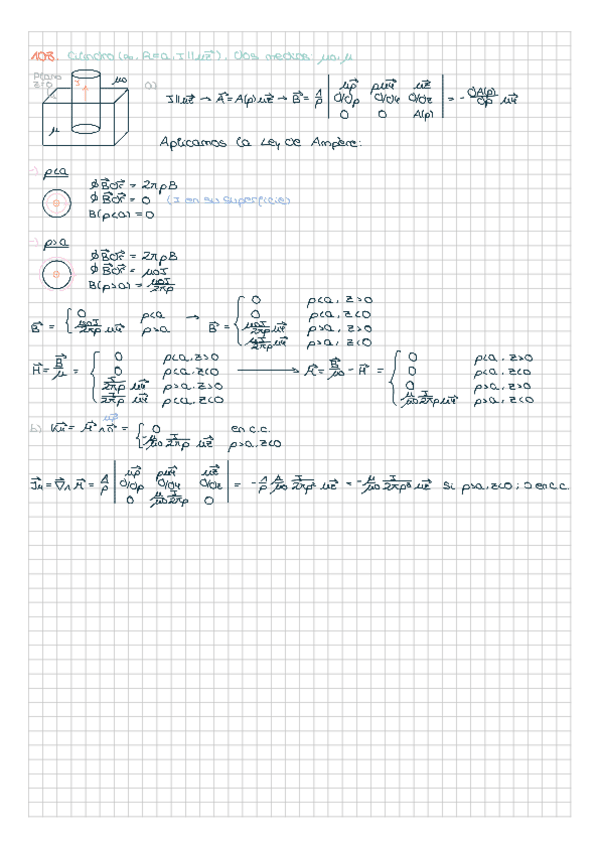 108. Cilindro (∞, R=a, I || u⃗z). Dos medios: μ0, μ
Plano z=0
μ0
I
μ
a) I || u⃗z → A⃗ = A(ρ) u⃗z → B⃗ = 1/ρ | u⃗ρ ρu⃗φ u⃗z |
| ∂/∂ρ ∂/∂φ ∂/∂z | = - ∂A(ρ)/∂ρ u⃗φ
| 0 0 A(ρ) |
Aplicamos la Ley de Ampère:
-) ρ<a
∮B⃗dr⃗ = 2πρB
∮B⃗dr⃗ = 0 (I en su superficie)
B(ρ<a) = 0
-) ρ>a
∮B⃗dr⃗ = 2πρB
∮B⃗dr⃗ = μ0I
B(ρ>a) = μ0I/2πρ
B⃗ = { 0 ρ<a
μ0I/2πρ u⃗φ ρ>a
→ B⃗ = { 0 ρ<a, z>0
0 ρ<a, z<0
μ0I/2πρ u⃗φ ρ>a, z>0
μI/2πρ u⃗φ ρ>a, z<0
H⃗ = B⃗/μ = { 0 ρ<a, z>0
0 ρ<a, z<0
I/2πρ u⃗φ ρ>a, z>0
I/2πρ u⃗φ ρ<a, z<0
→ M⃗ = B⃗/μ0 - H⃗ = { 0 ρ<a, z>0
0 ρ<a, z<0
0 ρ>a, z>0
μ/μ0 I/2πρ u⃗φ ρ>a, z<0
u⃗ρ
b) K⃗M = M⃗ ∧ n⃗ = { 0 en c.c.
-μ/μ0 I/2πρ u⃗z ρ>a, z<0
J⃗M = ∇⃗ ∧ M⃗ = 1/ρ | u⃗ρ ρu⃗φ u⃗z |
| ∂/∂ρ ∂/∂φ ∂/∂z | = - 1/ρ μ/μ0 I/2πρ² u⃗z = - μ/μ0 I/2πρ³ u⃗z si ρ>a, z<0; 0 en c.c.
| 0 μ/μ0 I/2πρ 0 |